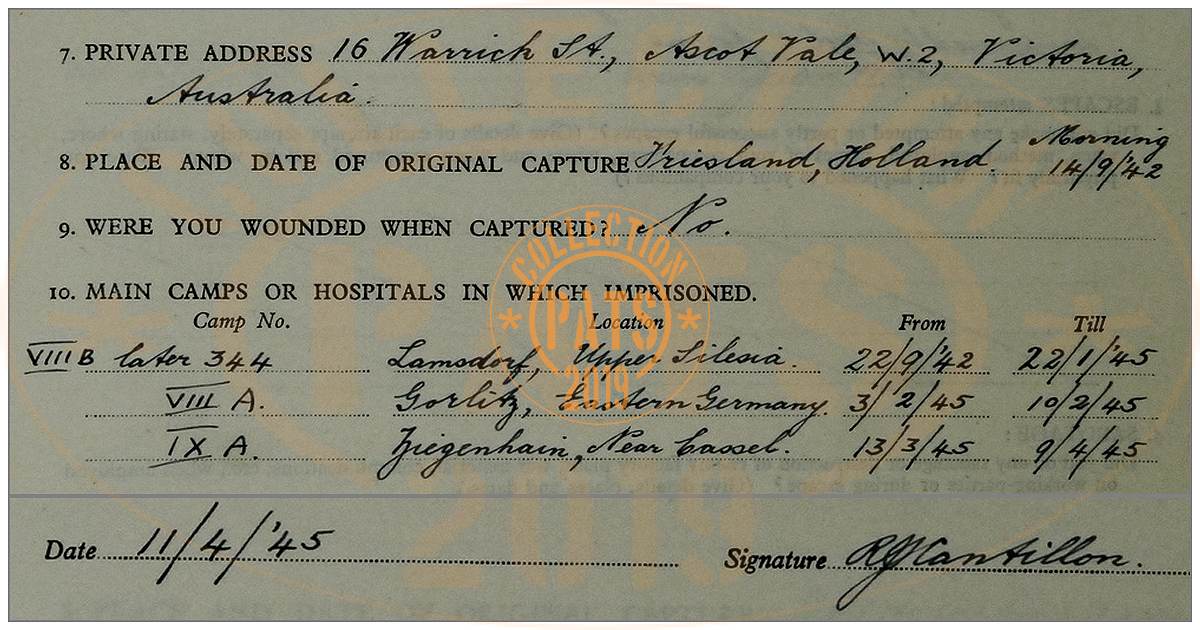 7. PRIVATE ADDRESS 16 Warrick St., Ascot Vale, W.2, Victoria,
Australia.
8. PLACE AND DATE OF ORIGINAL CAPTURE Friesland, Holland. Morning
14/9/'42
9. WERE YOU WOUNDED WHEN CAPTURED? No.
10. MAIN CAMPS OR HOSPITALS IN WHICH IMPRISONED.
Camp No. Location From Till
VIII B later 344 Lamsdorf, Upper Silesia. 22/9/'42 22/1/'45
VIII A. Gorlitz, Eastern Germany. 3/2/45 10/2/45
IX A. Ziegenhain, Near Cassel. 13/3/45 9/4/45
COLLECTION
PATS
2019
Date 11/4/'45 Signature RJCantillon.